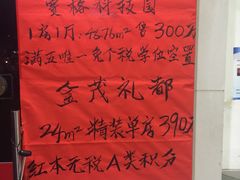 赛格科技园
1房1厅:48.76m² 售300万
满五唯一免个税学位空置
金茂礼都
24m²精装单房390万
红本元税A类积分